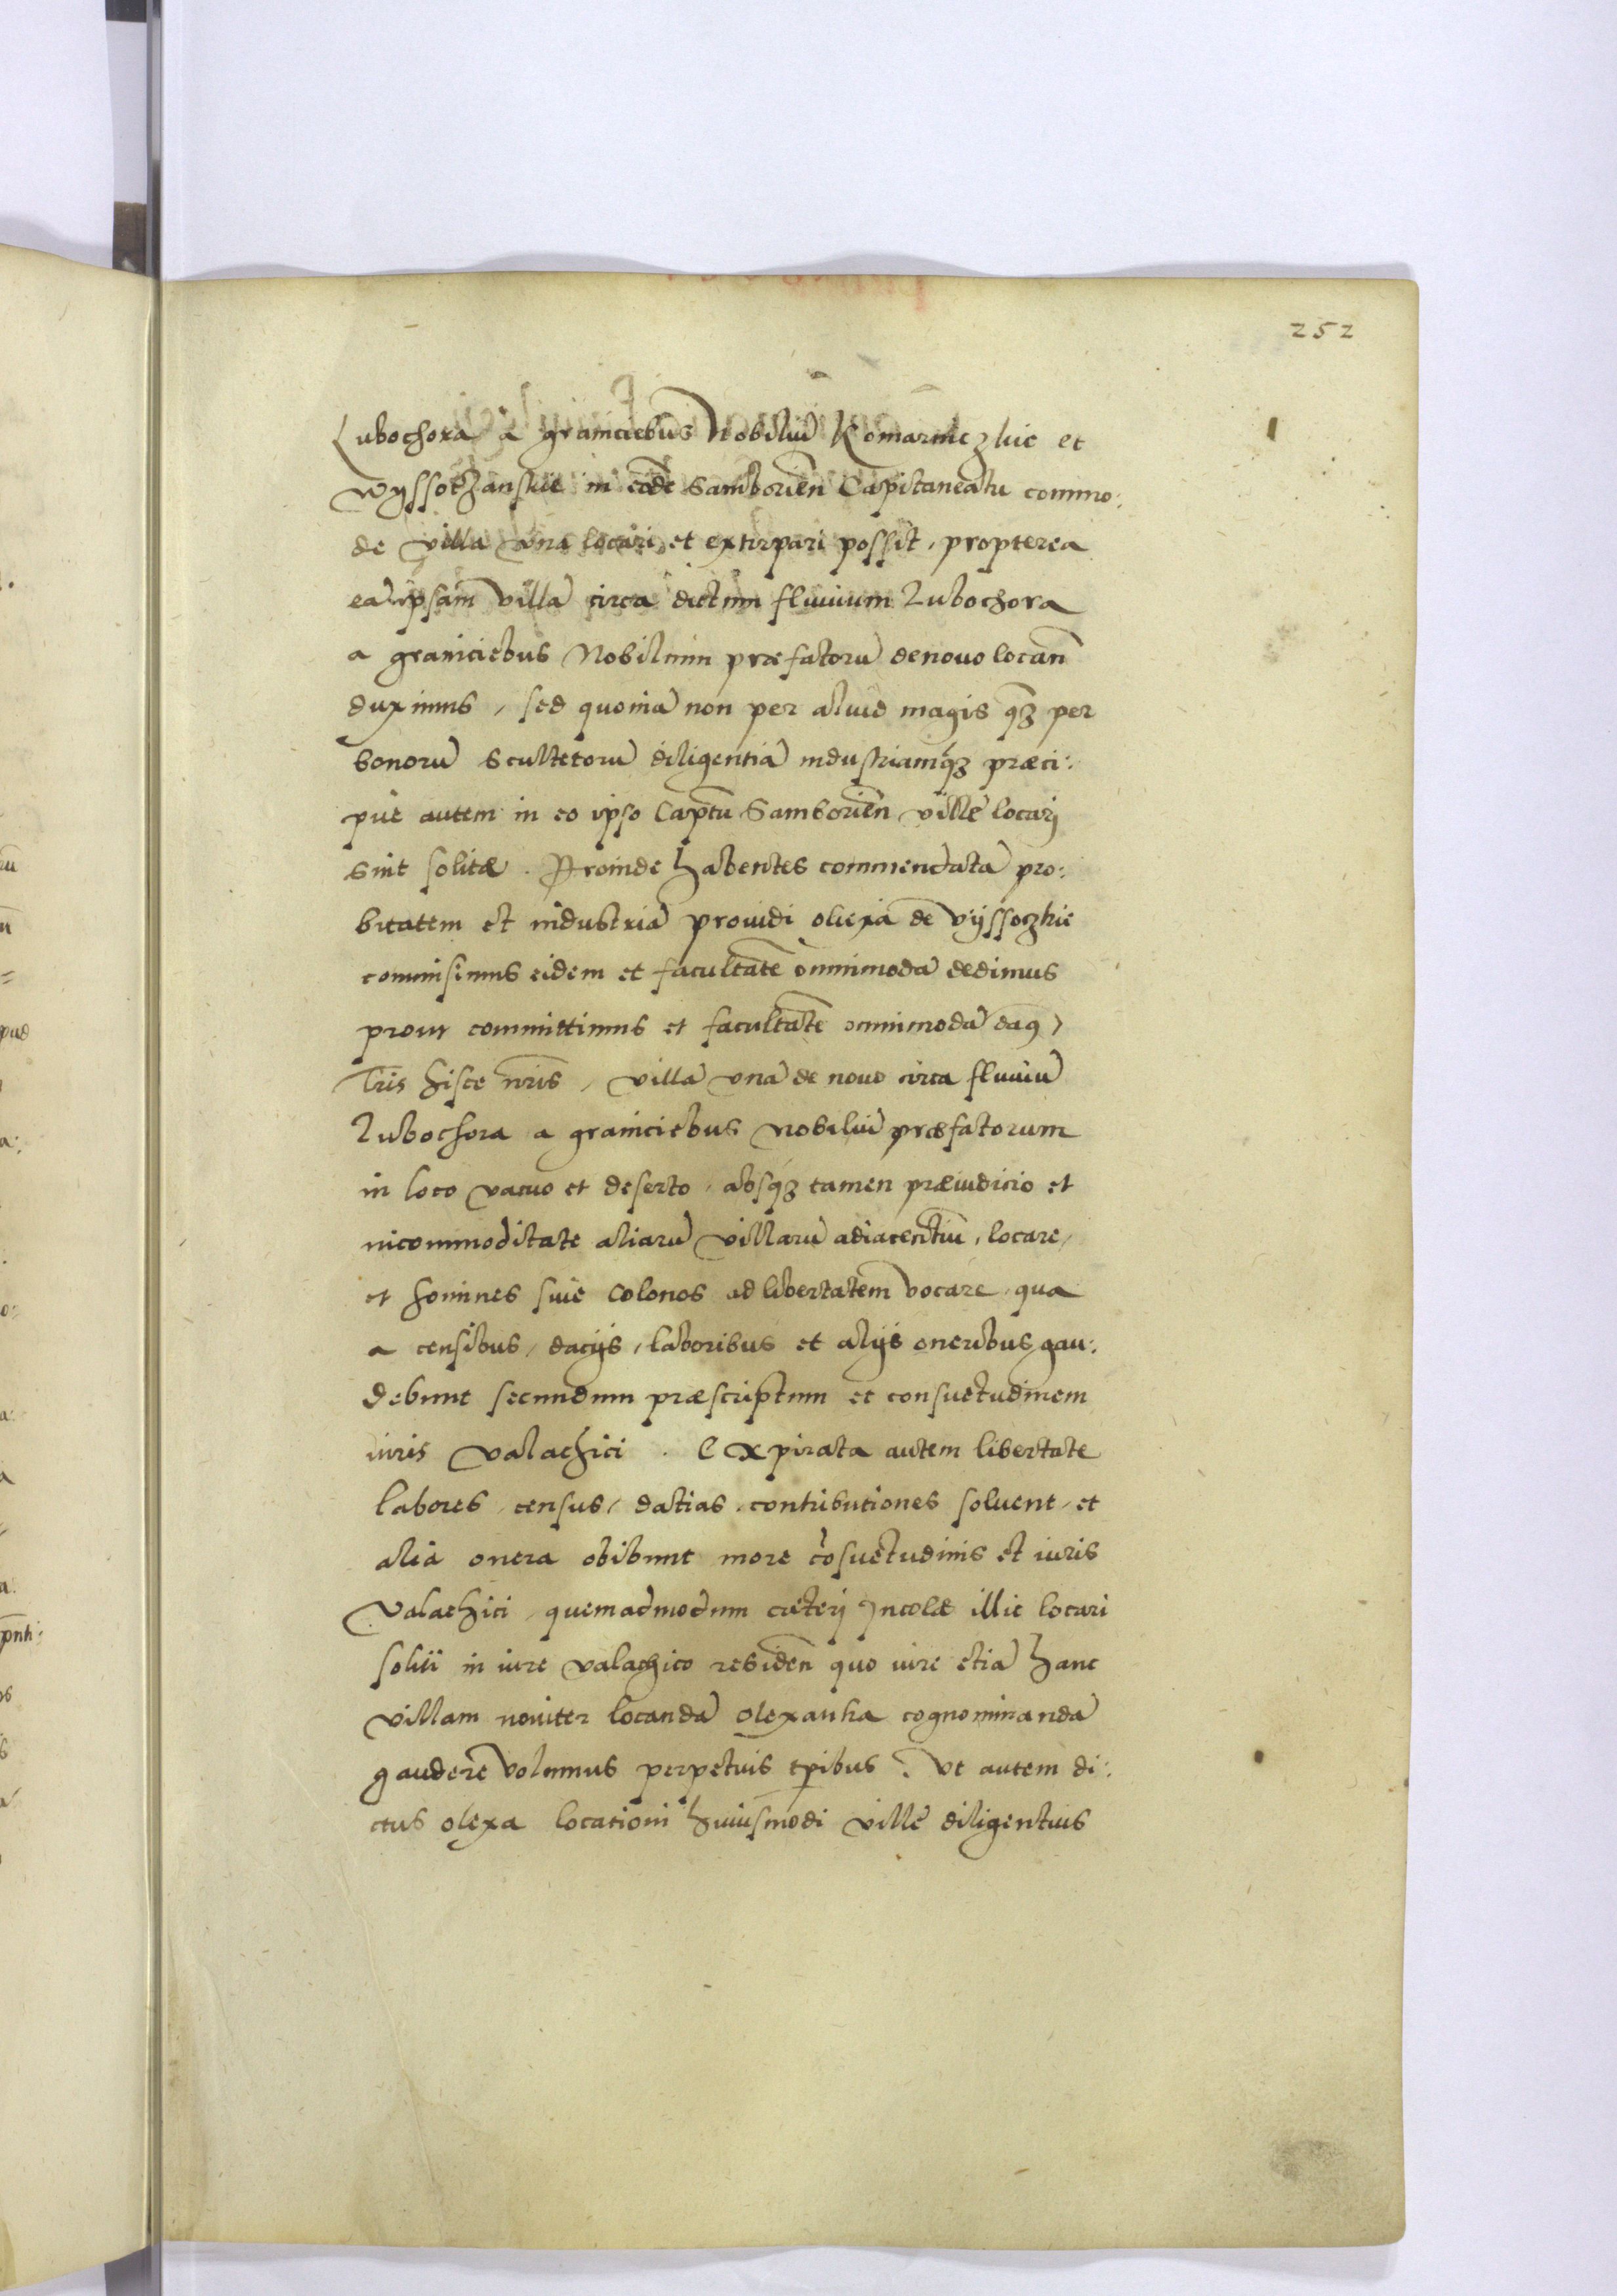 252
Lubochora a graniciebus Nobiliũ Komarniczkie et
Wyssotzanskie in eodẽ Samborieñ Capitaneatu commo:
de villa vna locari et extirpari possit, propterea
eãipsam villã circa dictum fluuium Lubochora
a graniciebus Nobilium præfatorũ denouo locañ
duximus, sed quoniã non per aliud magis qʒ per
bonorũ scultetorũ diligentiã industriamqʒ præci:
pue autem in eo ipso Captũ Samborieñ villę locarj
sint solitæ. Proinde habentes commendatã pro:
bitatem et industriã prouidi olexã de Vÿssoczkie
commisimus eidem et facultatẽ omnimodã dedimus
prout committimus et facultatẽ omnimodã damꝰ
Lr̃is hisce nr̃is, villã vnã de nouo circa fluuiũ
Lubochora a graniciebus nobiliũ præfatorum
in loco vacuo et deserto, absqʒ tamen præiudicio et
incommoditate aliarũ villarũ adiacentiũ, locare,
et homines siue colonos ad libertatem vocare, qua
a censibus, dacijs, laboribus et alijs oneribus gau:
debunt secundum præscriptum et consuetudinem
iuris Valachici. Expirata autem libertate
labores, census, datias, contributiones soluent, et
alia onera obibunt more cõsuetudinis et iuris
Valachici, quemadmodum cæterj Incolæ illic locari
soliti in iure valachico resideñ quo iure etiã hanc
villam nouiter locandã olexanka cognominandã
gaudere volumus perpetuis tp̃ibus. Vt autem di:
ctus olexa locationi huiusmodi villę diligentius